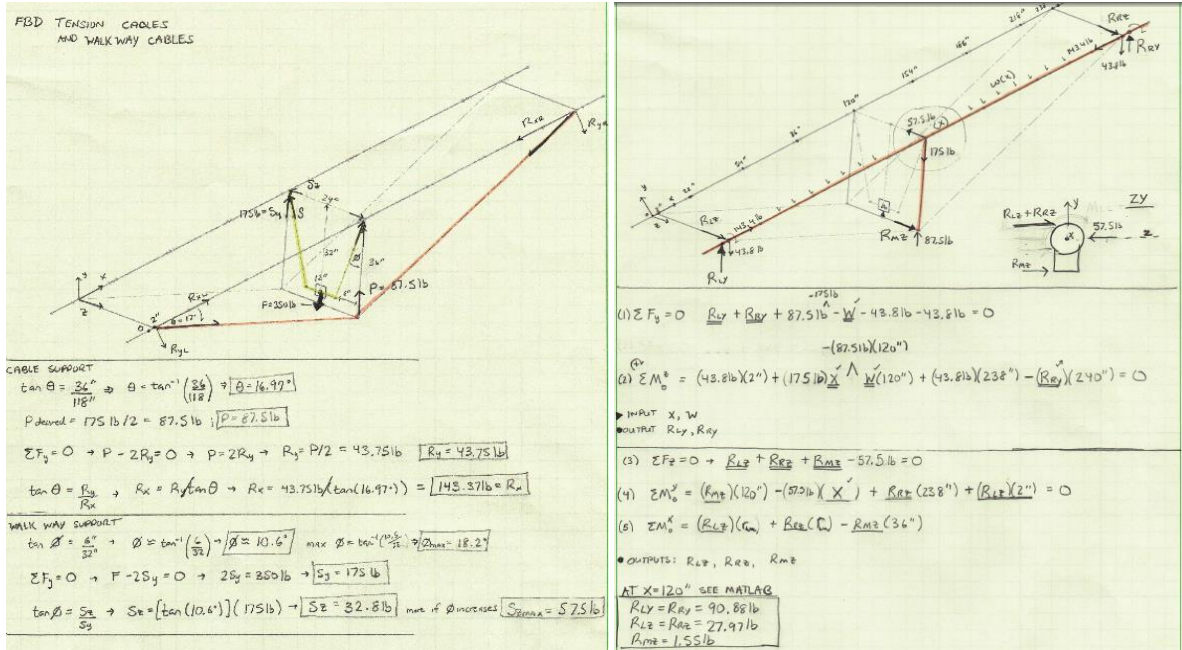 FBD TENSION CABLES
AND WALKWAY CABLES
Sz
24"
175lb=Sy
S
32"
φ
36"
12"
6"
F=350lb
P=87.5lb
y
x
z
2"
θ=17°
RyL
RxR
CABLE SUPPORT
tan θ = 36"/118" ⇒ θ = tan⁻¹(36/118) → θ=16.97°
P desired = 175 lb/2 = 87.5lb ; P=87.5lb
ΣFy=0 → P-2Ry=0 → P=2Ry → Ry=P/2 = 43.75lb Ry=43.75lb
tan θ = Ry/Rx , Rx = Ry/tanθ → Rx = 43.75lb/(tan(16.97°)) = 143.37lb=Rx
WALK WAY SUPPORT
tan φ = 6"/32" → φ = tan⁻¹(6/32) → φ≈10.6° max φmax=18.2°
ΣFy=0 → F-2Sy=0 → 2Sy=350lb → Sy=175 lb
tanφ = Sz/Sy → Sz=[tan(10.6°)](175lb) → Sz=32.8lb more if φ increases Szmax=57.5lb
216"
186"
154"
120"
86"
54"
22"
RRZ
RRY
143.4lb
43.8lb
W(x)
57.5lb
(X)
175lb
y
x
z
RLZ
143.4lb
43.8lb
RLY
RMZ
87.5lb
ZY
RLZ+RRZ
y
57.5lb
x
z
RMZ
-175lb
(1) ΣFy=0 RLY + RRY + 87.5lb - W - 43.8lb - 43.8lb = 0
-(87.5lb)(120")
(2) ΣMoz = (43.8lb)(2") + (175lb)X W(120") + (43.8lb)(238") - (RRY)(240") = 0
INPUT X, W
OUTPUT RLY, RRY
(3) ΣFz=0 → RLZ + RRZ + RMZ - 57.5lb = 0
(4) ΣMoy = (RMZ)(120") - (57.5lb)(X) + RRZ(238") + (RLZ)(2") = 0
(5) ΣMox = (RLZ)(rm) + RRZ(rm) - RMZ(36")
OUTPUTS: RLZ, RRZ, RMZ
AT X=120" SEE MATLAB
RLY = RRY = 90.88lb
RLZ = RRZ = 27.97lb
RMZ = 1.55lb